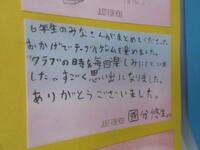 JUST FOR YOU
6年生のみなさんがまとめてくださった
おかげでテーブルゲームを楽めました。
クラブの時を毎回楽しみにしてい
ました。すごく思い出になりました。
ありがとうございました。
JUST FOR YOU